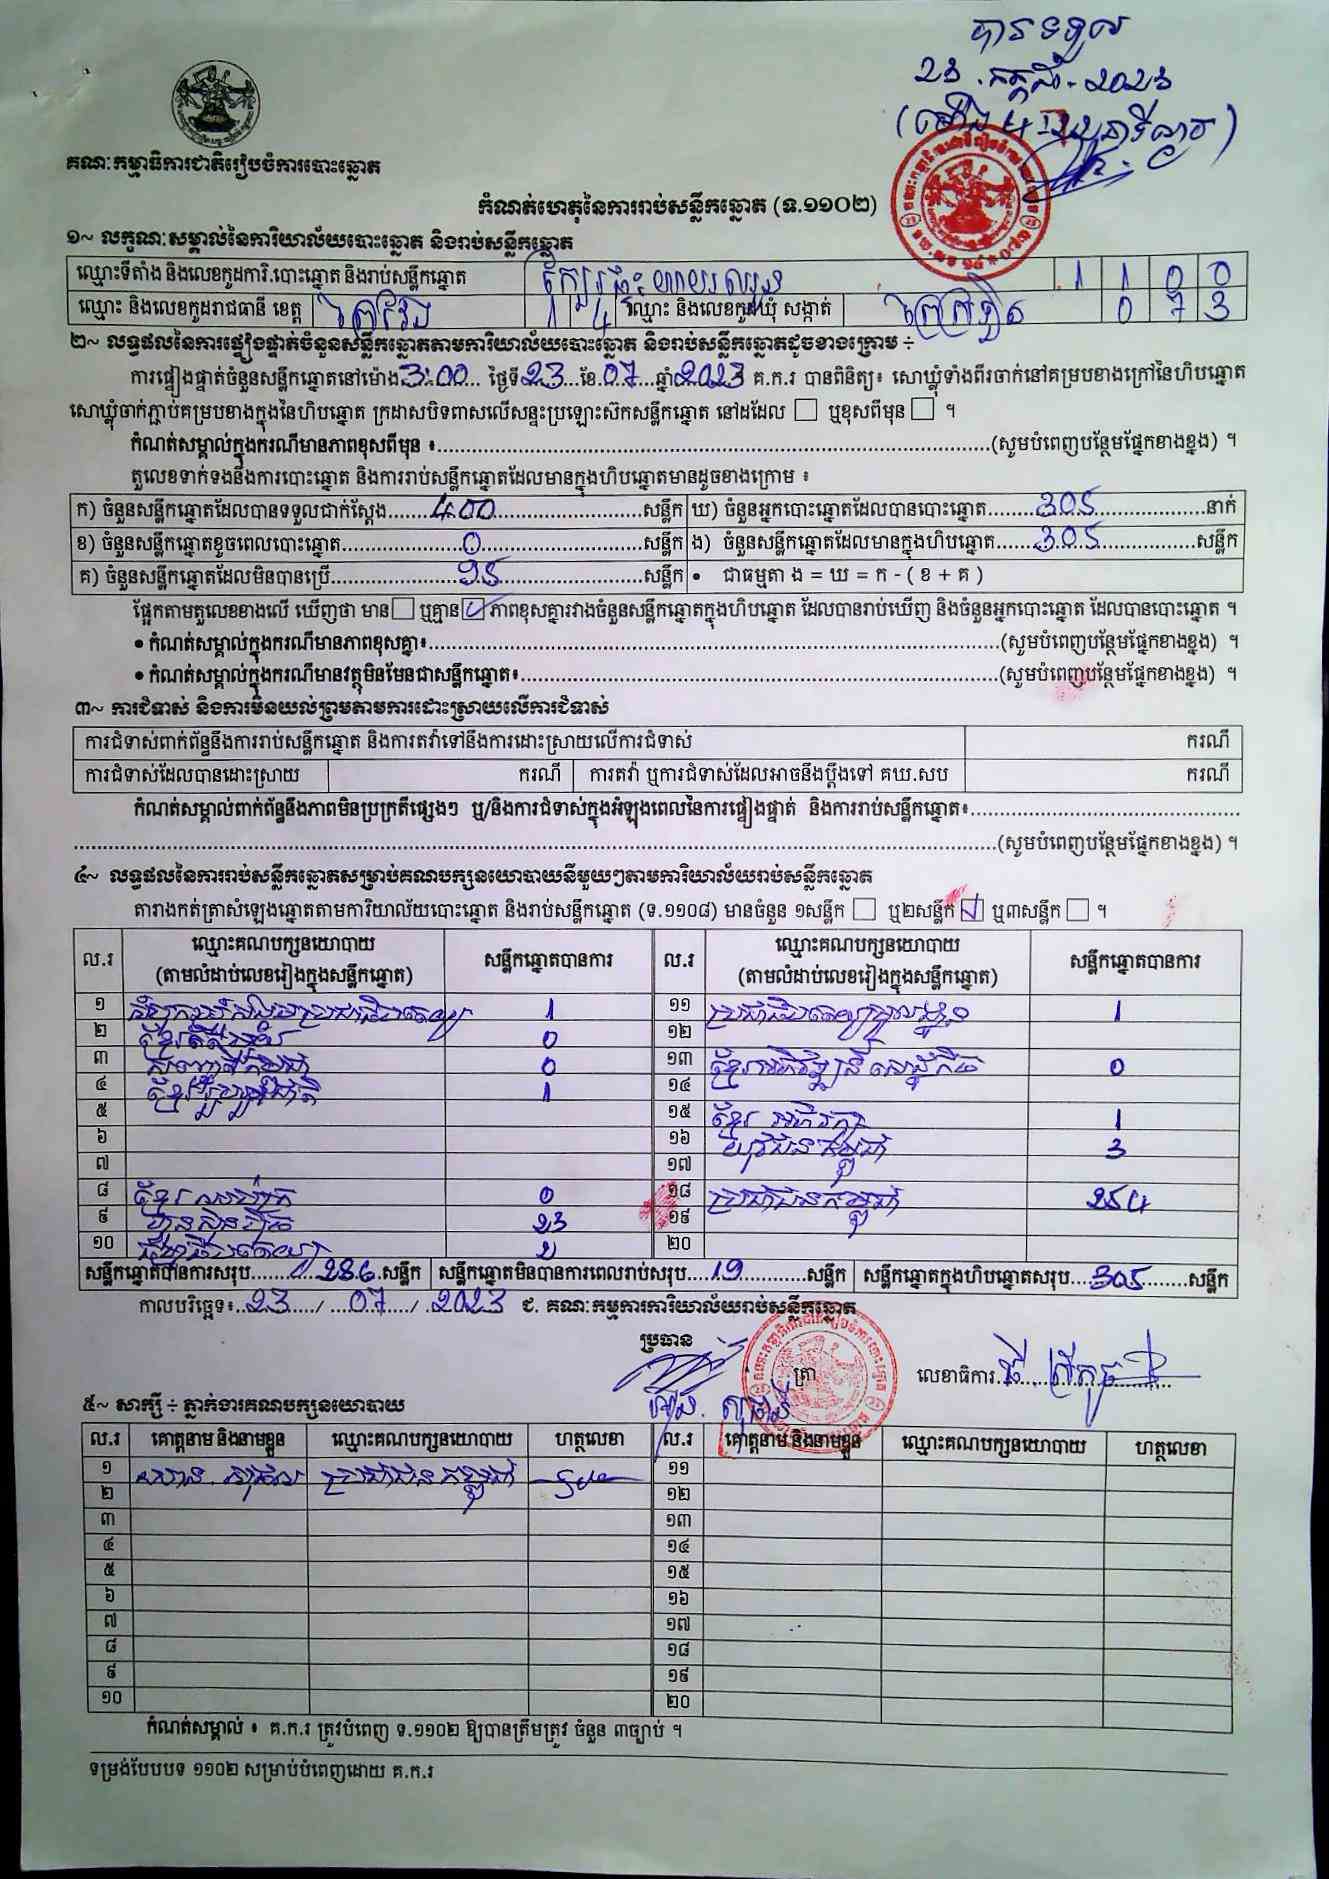 បានទទួល
23 . កក្កដា - 2023
គណៈកម្មាធិការជាតិរៀបចំការបោះឆ្នោត
កំណត់ហេតុនៃការរាប់សន្លឹកឆ្នោត (ទ.១១០២)
១~ លក្ខណៈសម្គាល់នៃការិយាល័យបោះឆ្នោត និងរាប់សន្លឹកឆ្នោត
ឈ្មោះទីតាំង និងលេខកូដការិ.បោះឆ្នោត និងរាប់សន្លឹកឆ្នោត 1 1 0 0
ឈ្មោះ និងលេខកូដរាជធានី ខេត្ត ព្រៃវែង 1 4 ឈ្មោះ និងលេខកូដឃុំ សង្កាត់ 0 7 3
២~ លទ្ធផលនៃការផ្ទៀងផ្ទាត់ចំនួនសន្លឹកឆ្នោតតាមការិយាល័យបោះឆ្នោត និងរាប់សន្លឹកឆ្នោតដូចខាងក្រោម ÷
ការផ្ទៀងផ្ទាត់ចំនួនសន្លឹកឆ្នោតនៅម៉ោង 3:00 ថ្ងៃទី 23 ខែ 07 ឆ្នាំ 2023 គ.ក.រ បានពិនិត្យ៖ សោឃ្លុំទាំងពីរចាក់នៅគម្របខាងក្រៅនៃហិបឆ្នោត
សោឃ្លុំចាក់ភ្ជាប់គម្របខាងក្នុងនៃហិបឆ្នោត ក្រដាសបិទពាសលើសន្ទះប្រឡោះស៊កសន្លឹកឆ្នោត នៅដដែល ☐ ឬខុសពីមុន ☐ ។
កំណត់សម្គាល់ក្នុងករណីមានភាពខុសពីមុន ៖ (សូមបំពេញបន្ថែមផ្នែកខាងខ្នង) ។
តួលេខទាក់ទងនឹងការបោះឆ្នោត និងការរាប់សន្លឹកឆ្នោតដែលមានក្នុងហិបឆ្នោតមានដូចខាងក្រោម ៖
ក) ចំនួនសន្លឹកឆ្នោតដែលបានទទួលជាក់ស្តែង 400 សន្លឹក ឃ) ចំនួនអ្នកបោះឆ្នោតដែលបានបោះឆ្នោត 305 នាក់
ខ) ចំនួនសន្លឹកឆ្នោតខូចពេលបោះឆ្នោត 0 សន្លឹក ង) ចំនួនសន្លឹកឆ្នោតដែលមានក្នុងហិបឆ្នោត 305 សន្លឹក
គ) ចំនួនសន្លឹកឆ្នោតដែលមិនបានប្រើ 95 សន្លឹក • ជាធម្មតា ង = ឃ = ក - ( ខ + គ )
ផ្អែកតាមតួលេខខាងលើ ឃើញថា មាន ☐ ឬគ្មាន ☑ ភាពខុសគ្នារវាងចំនួនសន្លឹកឆ្នោតក្នុងហិបឆ្នោត ដែលបានរាប់ឃើញ និងចំនួនអ្នកបោះឆ្នោត ដែលបានបោះឆ្នោត ។
• កំណត់សម្គាល់ក្នុងករណីមានភាពខុសគ្នា៖ (សូមបំពេញបន្ថែមផ្នែកខាងខ្នង) ។
• កំណត់សម្គាល់ក្នុងករណីមានវត្ថុមិនមែនជាសន្លឹកឆ្នោត៖ (សូមបំពេញបន្ថែមផ្នែកខាងខ្នង) ។
៣~ ការជំទាស់ និងការមិនយល់ព្រមតាមការដោះស្រាយលើការជំទាស់
ការជំទាស់ពាក់ព័ន្ធនឹងការរាប់សន្លឹកឆ្នោត និងការតវ៉ាទៅនឹងការដោះស្រាយលើការជំទាស់ ករណី
ការជំទាស់ដែលបានដោះស្រាយ ករណី ការតវ៉ា ឬការជំទាស់ដែលអាចនឹងប្តឹងទៅ គឃ.សប ករណី
កំណត់សម្គាល់ពាក់ព័ន្ធនឹងភាពមិនប្រក្រតីផ្សេងៗ ឬ/និងការជំទាស់ក្នុងអំឡុងពេលនៃការផ្ទៀងផ្ទាត់ និងការរាប់សន្លឹកឆ្នោត៖
(សូមបំពេញបន្ថែមផ្នែកខាងខ្នង) ។
៤~ លទ្ធផលនៃការរាប់សន្លឹកឆ្នោតសម្រាប់គណបក្សនយោបាយនីមួយៗតាមការិយាល័យរាប់សន្លឹកឆ្នោត
តារាងកត់ត្រាសំឡេងឆ្នោតតាមការិយាល័យបោះឆ្នោត និងរាប់សន្លឹកឆ្នោត (ទ.១១០៨) មានចំនួន ១សន្លឹក ☐ ឬ២សន្លឹក ☑ ឬ៣សន្លឹក ☐ ។
ល.រ ឈ្មោះគណបក្សនយោបាយ សន្លឹកឆ្នោតបានការ ល.រ ឈ្មោះគណបក្សនយោបាយ សន្លឹកឆ្នោតបានការ
(តាមលំដាប់លេខរៀងក្នុងសន្លឹកឆ្នោត) (តាមលំដាប់លេខរៀងក្នុងសន្លឹកឆ្នោត)
១ 1 ១១ 1
២ 0 ១២
៣ 0 ១៣ 0
៤ 1 ១៤
៥ ១៥ 1
៦ ១៦ 3
៧ ១៧
៨ 0 ១៨ ប្រជាជនកម្ពុជា 254
៩ ហ៊្វុនស៊ិនប៉ិច 23 ១៩
១០ 2 ២០
សន្លឹកឆ្នោតបានការសរុប 286 សន្លឹក សន្លឹកឆ្នោតមិនបានការពេលរាប់សរុប 19 សន្លឹក សន្លឹកឆ្នោតក្នុងហិបឆ្នោតសរុប 305 សន្លឹក
កាលបរិច្ឆេទ៖ 23 / 07 / 2023 ជ. គណៈកម្មការការិយាល័យរាប់សន្លឹកឆ្នោត
ប្រធាន
ត្រា លេខាធិការ
៥~ សាក្សី ÷ ភ្នាក់ងារគណបក្សនយោបាយ
ល.រ គោត្តនាម និងនាមខ្លួន ឈ្មោះគណបក្សនយោបាយ ហត្ថលេខា ល.រ គោត្តនាម និងនាមខ្លួន ឈ្មោះគណបក្សនយោបាយ ហត្ថលេខា
១ ប្រជាជនកម្ពុជា ១១
២ ១២
៣ ១៣
៤ ១៤
៥ ១៥
៦ ១៦
៧ ១៧
៨ ១៨
៩ ១៩
១០ ២០
កំណត់សម្គាល់ ៖ គ.ក.រ ត្រូវបំពេញ ទ.១១០២ ឱ្យបានត្រឹមត្រូវ ចំនួន ៣ច្បាប់ ។
ទម្រង់បែបបទ ១១០២ សម្រាប់បំពេញដោយ គ.ក.រ